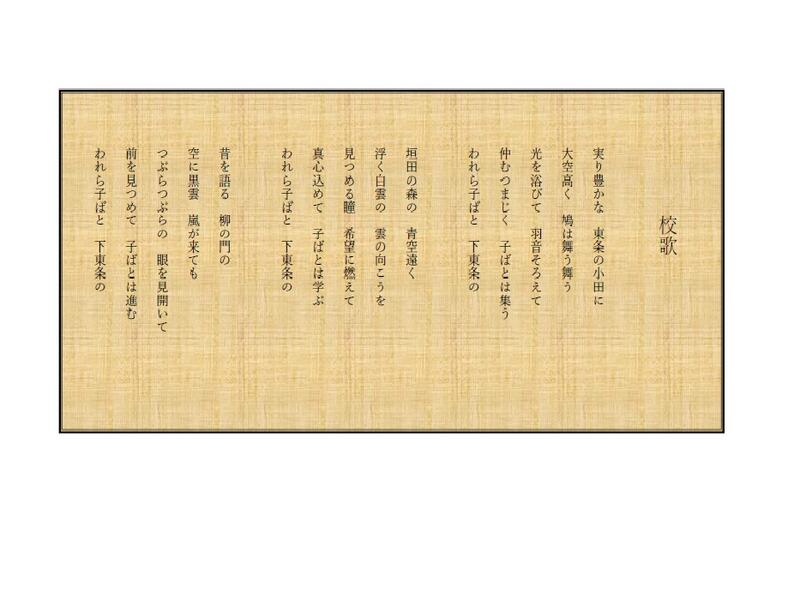 校歌
実り豊かな　東条の小田に
大空高く　鳩は舞う舞う
光を浴びて　羽音そろえて
仲むつまじく　子ばとは集う
われら子ばと　下東条の
垣田の森の　青空遠く
浮く白雲の　雲の向こうを
見つめる瞳　希望に燃えて
真心込めて　子ばとは学ぶ
われら子ばと　下東条の
昔を語る　柳の門の
空に黒雲　嵐が来ても
つぶらつぶらの　眼を見開いて
前を見つめて　子ばとは進む
われら子ばと　下東条の